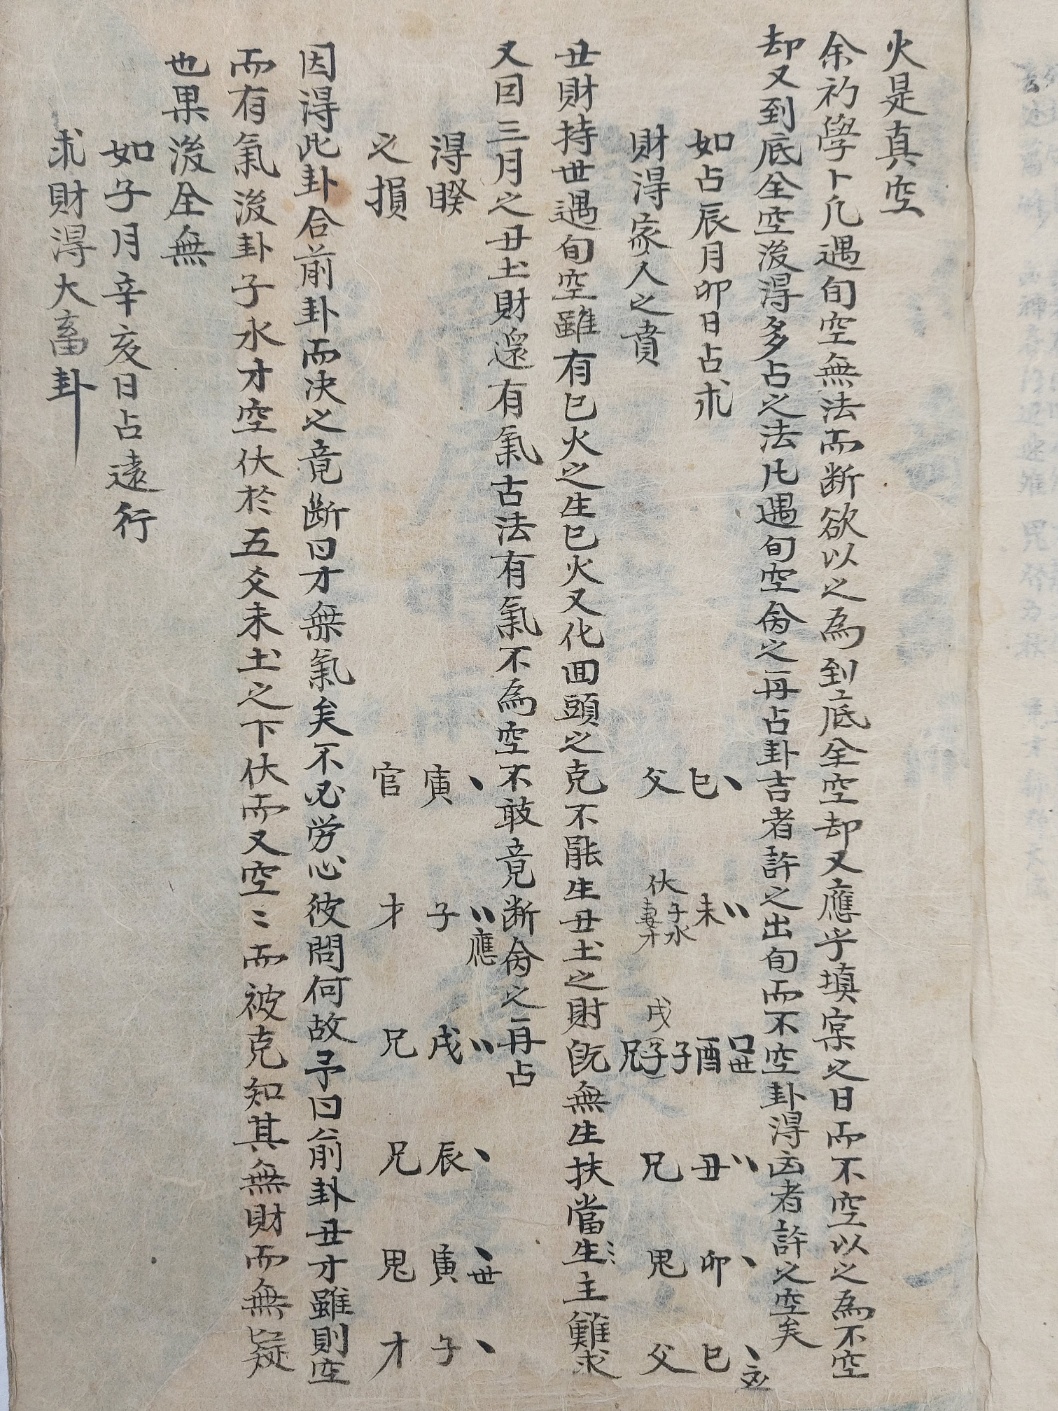 火是真空
余初學卜凡遇旬空無法而断欲以之為到底全空却又應乎填寔之日而不空以之為不空
却又到底全空後得多占之法凡遇旬空命之再占卦吉者許之出旬而不空卦得凶者許之空矣
如占辰月卯日占求
財得家人之賁
巳、 未〃 酉世 丑〃 卯、 巳、应
父 伏子水妻才 子子戌兄 兄 鬼 父
丑財持世遇旬空雖有巳火之生巳火又化囬頭之克不能生丑土之財既無生扶當生主難求
又曰三月之丑土財還有氣古法有氣不為空不敢竟断命之再占
得睽
之損
寅、 子〃應 戌〃 辰、 寅、世 子、
官 才 兄 兄 鬼 才
因得此卦合前卦而决之竟断曰才無氣矣不必労心彼問何故予曰前卦丑才雖則空
而有氣後卦子水才空伏於五爻未土之下伏而又空〻而被克知其無財而無疑
也果後全無
如子月辛亥日占遠行
求財得大畜卦